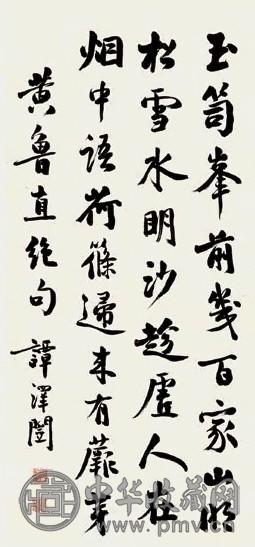 玉笥峯前幾百家山明
松雪水明沙趁虛人在
烟中語荷篠歸来有蕨芽
黄魯直絶句 譚澤闓
中华收藏网
www.pmv.cn